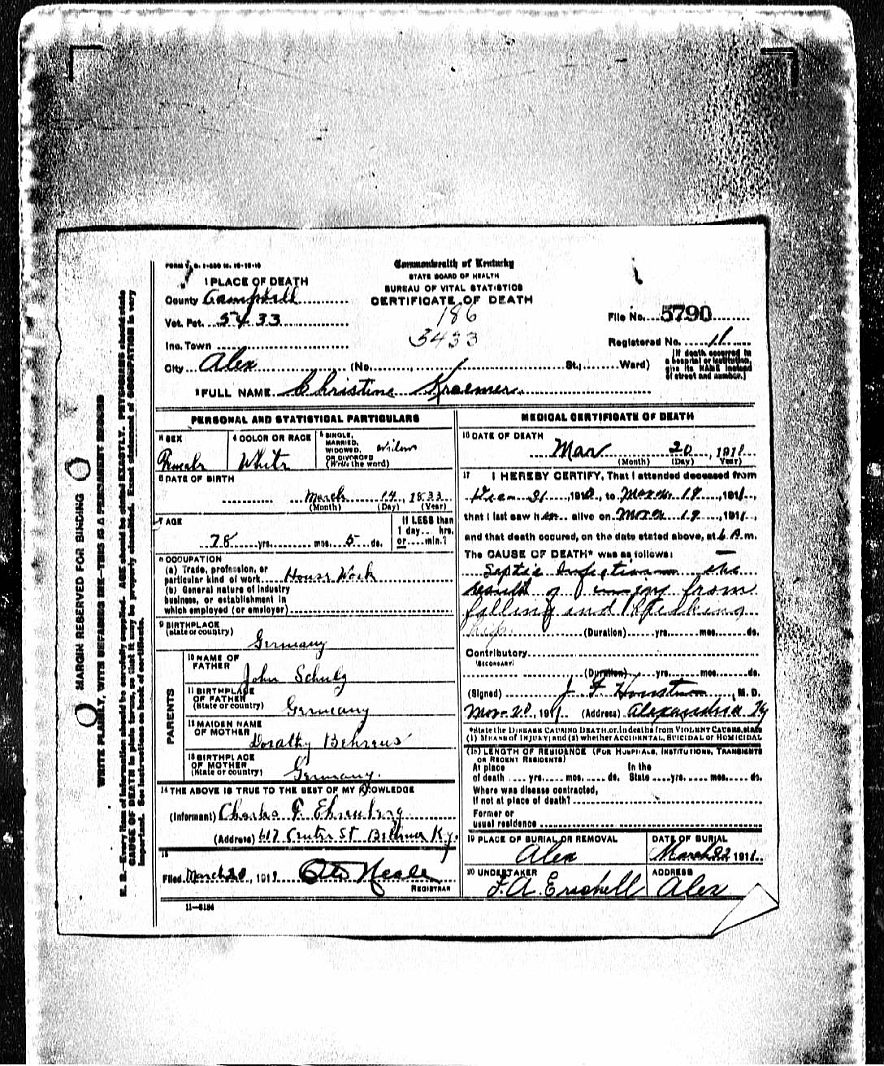 Commonwealth of Kentucky
STATE BOARD OF HEALTH
BUREAU OF VITAL STATISTICS
CERTIFICATE OF DEATH
186
3433
1 PLACE OF DEATH
County Campbell
Vot. Pct. 5433
Inc. Town
City Alex (No. St.; Ward)
File No. 5790
Registered No. 11
[If death occurred in a hospital or institution, give its NAME instead of street and number.]
2 FULL NAME Christine Kraemer
PERSONAL AND STATISTICAL PARTICULARS
3 SEX Female
4 COLOR OR RACE White
5 SINGLE, MARRIED, WIDOWED, OR DIVORCED (Write the word) Widow
6 DATE OF BIRTH
March 14, 1833
(Month) (Day) (Year)
7 AGE
78 yrs. mos. 5 ds.
If LESS than 1 day hrs. or min.?
8 OCCUPATION
(a) Trade, profession, or
particular kind of work House Work
(b) General nature of industry
business, or establishment in
which employed (or employer)
9 BIRTHPLACE
(state or country)
Germany
PARENTS
10 NAME OF FATHER
John Schulz
11 BIRTHPLACE OF FATHER
(State or country) Germany
12 MAIDEN NAME OF MOTHER
Dorathy Behrens
13 BIRTHPLACE OF MOTHER
(State or country) Germany.
14 THE ABOVE IS TRUE TO THE BEST OF MY KNOWLEDGE
(Informant) Charles F. Ehrenberg
(Address) 617 Center St Bellevue Ky.
15
Filed March 20, 1911
REGISTRAR
11-3184
MEDICAL CERTIFICATE OF DEATH
16 DATE OF DEATH
Mar 20, 1911
(Month) (Day) Year)
17 I HEREBY CERTIFY, That I attended deceased from
31 191, to March 19, 1911,
that I last saw her alive on March 19, 1911,
and that death occured, on the date stated above, at 6 A.m.
The CAUSE OF DEATH* was as follows:
Septic Infection the
result of injury from
falling and Breaking
hip. (Duration) yrs. mos. ds.
Contributory
(SECONDARY)
(Duration) yrs. mos. ds.
(Signed) J. F. M. D.
Mar. 20, 1911 (Address) Alexandria Ky
*State the DISEASE CAUSING DEATH, or, in deaths from VIOLENT CAUSES, state
(1) MEANS of INJURY; and (2) whether ACCIDENTAL, SUICIDAL or HOMICIDAL
18 LENGTH OF RESIDENCE (FOR HOSPITALS, INSTITUTIONS, TRANSIENTS
OR RECENT RESIDENTS)
At place In the
of death yrs. mos. ds. State yrs. mos. ds.
Where was disease contracted,
If not at place of death?
Former or
usual residence
19 PLACE OF BURIAL OR REMOVAL
Alex
DATE OF BURIAL
March 22 1911.
20 UNDERTAKER
F. A.
ADDRESS
Alex
MARGIN RESERVED FOR BINDING
WRITE PLAINLY, WITH UNFADING INK—THIS IS A PERMANENT
N. B.—Every item of information should be carefully supplied. AGE should be stated EXACTLY. PHYSICIANS should state
CAUSE OF DEATH in plain terms, so that it may be properly classified. Exact statement of OCCUPATION is very
important. See instructions on back of certificate.